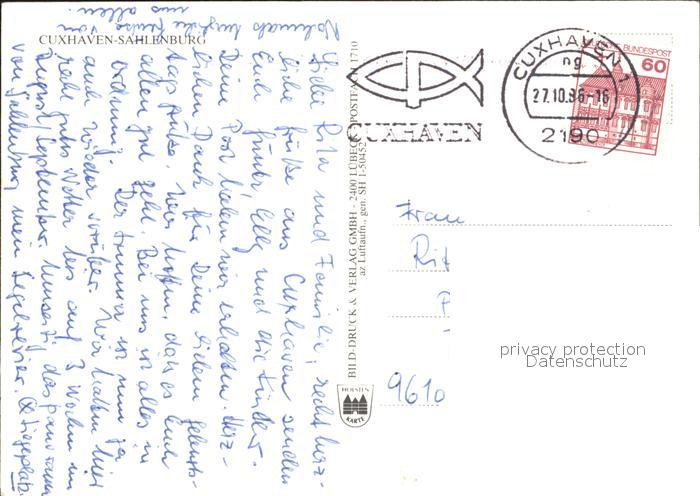 CUXHAVEN-SAHLENBURG
Liebe Rita und Familie, recht herz-
liche Grüße aus Cuxhaven senden
Euch Günter Elly und die Kinder.
Deine Post haben wir erhalten. Herz-
lichen Dank für Deine lieben Geburts-
tagsgrüße. Wir hoffen, daß es Euch
allen gut geht. Bei uns ist alles in
Ordnung. Der Sommer ist nun ja
auch wieder vorüber. Wir hatten hier
recht gutes Wetter bis auf 3 Wochen im
August/September. Umseitig das Panorama
von Sahlenburg mein Segelrevier. ⊗ Liegeplatz.
Nochmals herzliche Grüße von
uns allen.
BILD-DRUCK & VERLAG GMBH - 2400 LÜBECK POSTFACH 1710
az Luftaufn., gen. SH 1-50452
HOLSTEN
KARTE
CUXHAVEN
CUXHAVEN 1
ng
27.10.86-16
2190
DEUTSCHE BUNDESPOST
60
Frau
Rit
9610
privacy protection
Datenschutz